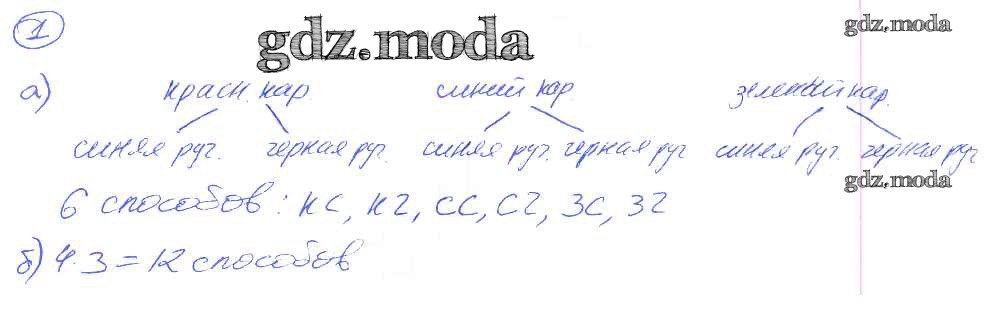 1
gdz.moda
gdz.moda
а) красн. кар. синий кар. зеленый кар.
синяя руч. черная руч. синяя руч. черная руч синяя руч. черная руч
gdz.moda
6 способов: кс, кч, сс, сч, зс, зч
б) 4·3=12 способов